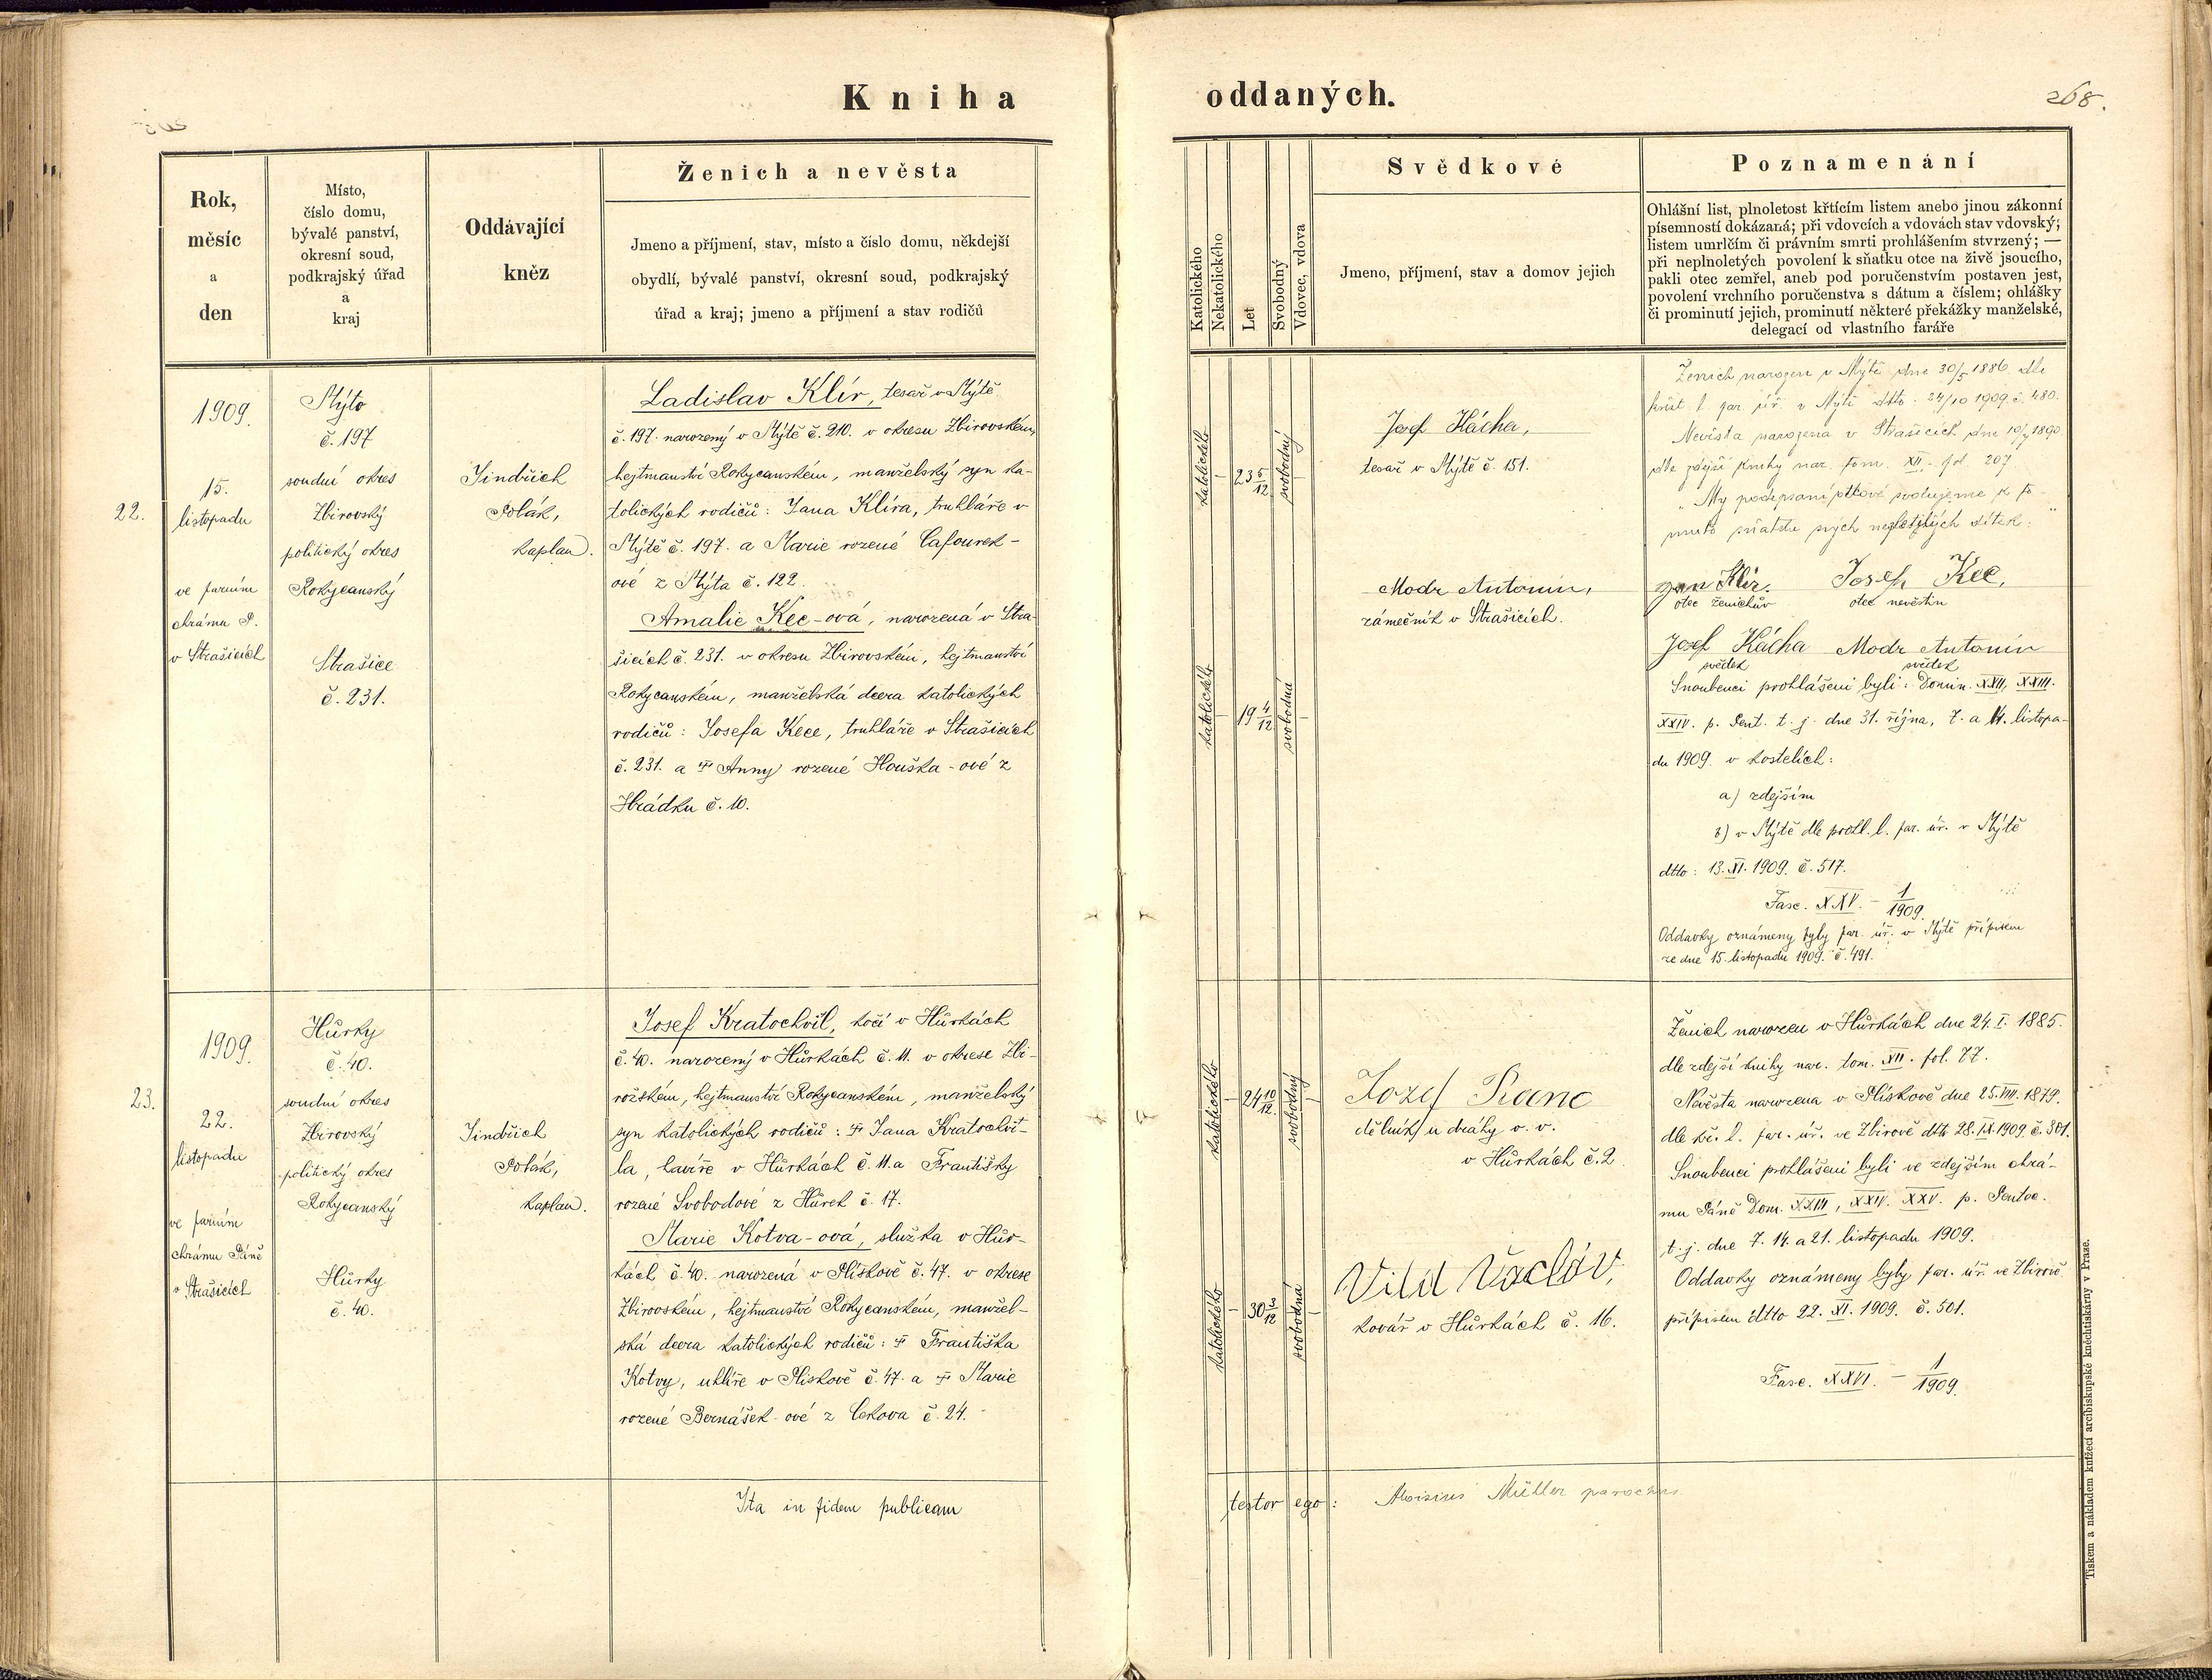 Kniha
oddaných.
268.
Rok,
měsíc
a
den
Místo,
číslo domu,
bývalé panství,
okresní soud,
podkrajský úřad
a
kraj
Oddávající
kněz
Ženich a nevěsta
Jmeno a příjmení, stav, místo a číslo domu, někdejší
obydlí, bývalé panství, okresní soud, podkrajský
úřad a kraj; jmeno a příjmení a stav rodičů
Katolického
Nekatolického
Let
Svobodný
Vdovec, vdova
Svědkové
Jmeno, příjmení, stav a domov jejich
Poznamenání
Ohlášní list, plnoletost křtícím listem anebo jinou zákonní
písemností dokázaná; při vdovcích a vdovách stav vdovský;
listem umrlčím či právním smrti prohlášením stvrzený; —
při neplnoletých povolení k sňatku otce na živě jsoucího,
pakli otec zemřel, aneb pod poručenstvím postaven jest,
povolení vrchního poručenstva s dátum a číslem; ohlášky
či prominutí jejich, prominutí některé překážky manželské,
delegací od vlastního faráře
22.
1909.
15.
listopadu
ve farním
chrámu P.
v Strašicích
Mýto
č. 197
soudní okres
Zbirovský
politický okres
Rokycanský
Strašice
č. 231.
Jindřich
Polák,
kaplan.
Ladislav Klír, tesař v Mýtě
č. 197. narozený v Mýtě č. 210. v okresu Zbirovském,
hejtmanství Rokycanském, manželský syn ka-
tolických rodičů: Jana Klíra, truhláře v
Mýtě č. 197. a Marie rozené Cafourek-
ové z Mýta č. 122.
Amalie Kec-ová, narozená v Stra-
šicích č. 231. v okresu Zbirovském, hejtmanství
Rokycanském, manželská dcera katolických
rodičů: Josefa Kece, truhláře v Strašicích
č. 231. a † Anny rozené Houška-ové z
Hrádku č. 10.
katolického
23 5/12
svobodný
katolického
19 4/12
svobodná
Josef Hácha,
tesař v Mýtě č. 151.
Modr Antonin,
zámečník v Strašicích.
Ženich narozen v Mýtě dne 30/5 1886 dle
křest. l. far. úř. v Mýtě dtto. 24/10 1909 č. 480.
Nevěsta narozena v Strašicích dne 10/7 1890
dle zdejší knihy nar. tom. XII. fol. 207
"My podepsaní otcové svolujeme k to-
muto sňatku svých nezletilých dítek:"
Jan Klír. Josef Kec,
otec ženichův otec nevěstin
Josef Hácha Modr Antonín
svědek svědek
Snoubenci prohlášeni byli: Domin. XXII, XXIII.
XXIV. p. Pent. t. j. dne 31. října, 7. a 14. listopa-
du 1909. v kostelích:
a) zdejším
b) v Mýtě dle prohl. l. far. úř. v Mýtě
dtto: 13. XI. 1909. č. 517.
Fasc. XXV. - 1/1909.
Oddavky oznámeny byly far. úř. v Mýtě přípisem
ze dne 15. listopadu 1909. č. 491.
23.
1909.
22.
listopadu
ve farním
chrámu Páně
v Strašicích
Hůrky
č. 40.
soudní okres
Zbirovský
politický okres
Rokycanský
Hůrky
č. 40.
Jindřich
Polák,
kaplan.
Josef Kratochvíl, kočí v Hůrkách
č. 40. narozený v Hůrkách č. 11. v okrese Zbi-
rožském, hejtmanství Rokycanském, manželský
syn katolických rodičů: † Jana Kratochví-
la, laviře v Hůrkách č. 11. a Františky
rozené Svobodové z Hůrek č. 17.
Marie Kotva-ová, služka v Hůr-
kách č. 40. narozená v Plískově č. 47. v okrese
Zbirovském, hejtmanství Rokycanském, manžel-
ská dcera katolických rodičů: † Františka
Kotvy, uhlíře v Plískově č. 47. a † Marie
rozené Bernášek-ové z Cekova č. 24.
katolického
24 10/12
svobodný
katolického
30 3/12
svobodná
Jozef
dělník u dráhy v. v.
v Hůrkách č. 2
Vild Václav,
kovář v Hůrkách č. 16.
Ženich narozen v Hůrkách dne 24. I. 1885.
dle zdejší knihy nar. tom. XII. fol. 77.
Nevěsta narozena v Plískově dne 25. VIII. 1879.
dle kř. l. far. úř. ve Zbirově dtto 28. IX. 1909. č. 381.
Snoubenci prohlášeni byli ve zdejším chrá-
mu Páně Dom. XXIII, XXIV. XXV. p. Pentec.
t. j. dne 7. 14. a 21. listopadu 1909.
Oddavky oznámeny byly far. úř. ve Zbirově
přípisem dtto 22. XI. 1909. č. 501.
Fasc. XXVI. - 1/1909.
Ita in fidem publicam
testor ego: Aloisius Müller parochus.
Tiskem a nákladem knížecí arcibiskupské knihtiskárny v Praze.